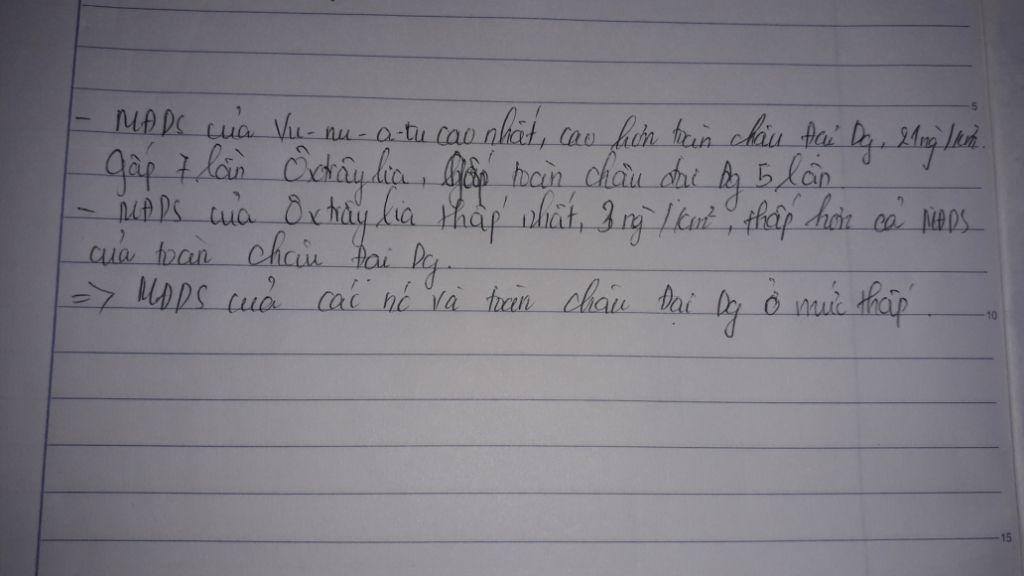 - MĐDS của Vu-nu-a-tu cao nhất, cao hơn toàn châu Đại Dg, 21ng`/km².
Gấp 7 lần Ôxtrâylia, gấp toàn châu đại Dg 5 lần
- MĐDS của Ôxtrâylia thấp nhất, 3 ng`/km², thấp hơn cả MĐDS
của toàn châu Đại Dg.
=> MĐDS của các nc và toàn châu Đại Dg ở mức thấp.
5
10
15